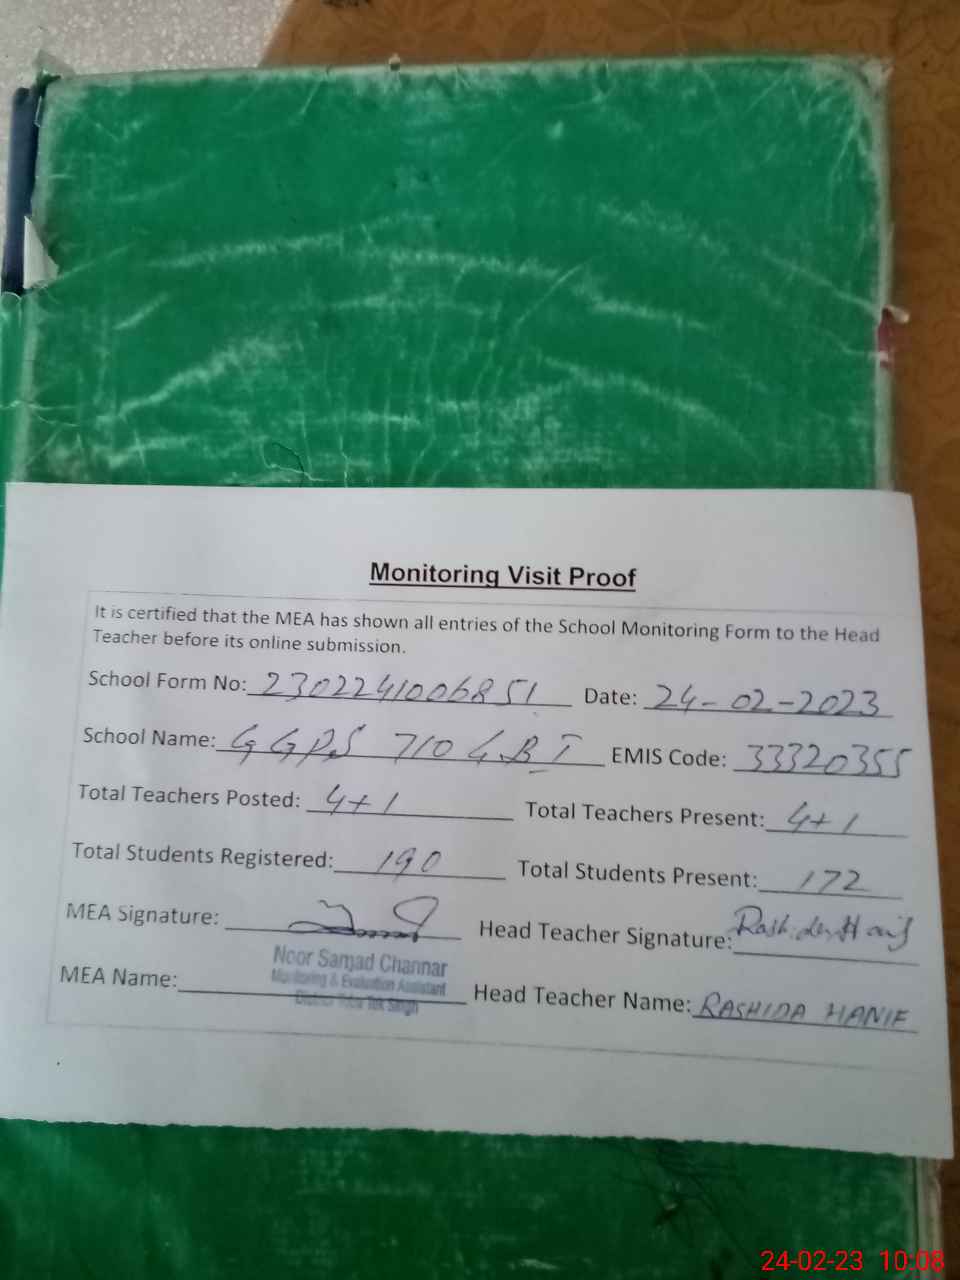 Monitoring Visit Proof
It is certified that the MEA has shown all entries of the School Monitoring Form to the Head
Teacher before its online submission.
School Form No: 2302241006851 Date: 24-02-2023
School Name: GGPS 710 GB T EMIS Code: 33320355
Total Teachers Posted: 4+1 Total Teachers Present: 4+1
Total Students Registered: 190 Total Students Present: 172
MEA Signature: Head Teacher Signature: Rashida Hanif
Noor Samad Channar
Monitoring & Evaluation Assistant
District Toba Tek Singh
MEA Name: Head Teacher Name: RASHIDA HANIF
24-02-23 10:08